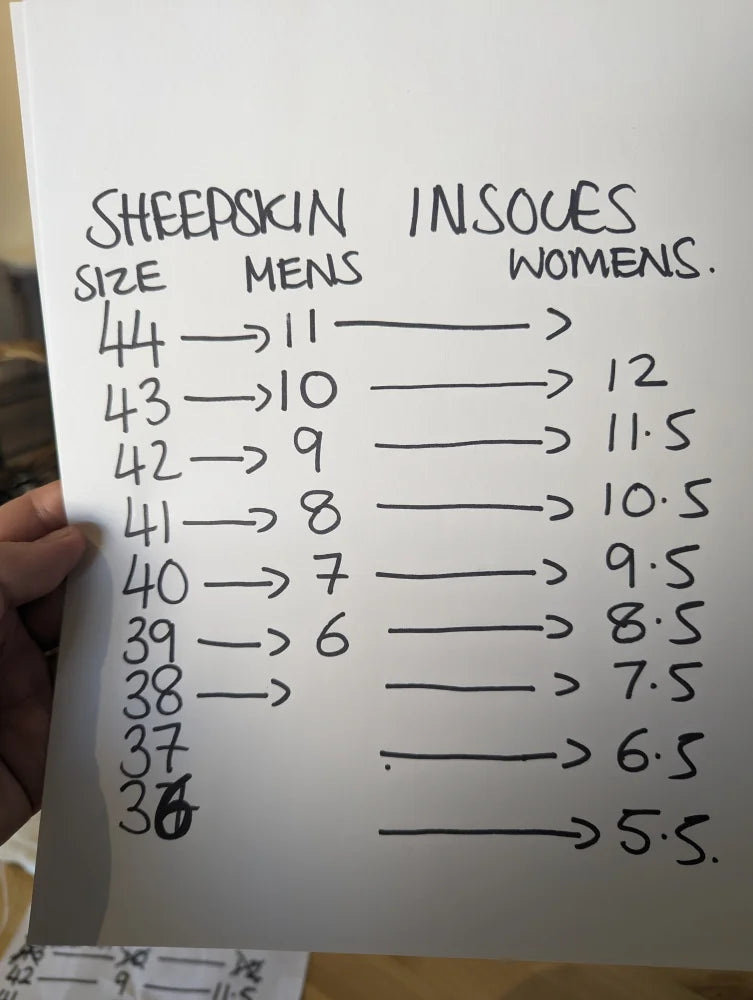 SHEEPSKIN INSOLES
SIZE MENS WOMENS.
44 → 11 →
43 → 10 → 12
42 → 9 → 11.5
41 → 8 → 10.5
40 → 7 → 9.5
39 → 6 → 8.5
38 → → 7.5
37 → 6.5
36 → 5.5.
42 — 9 — 11.5